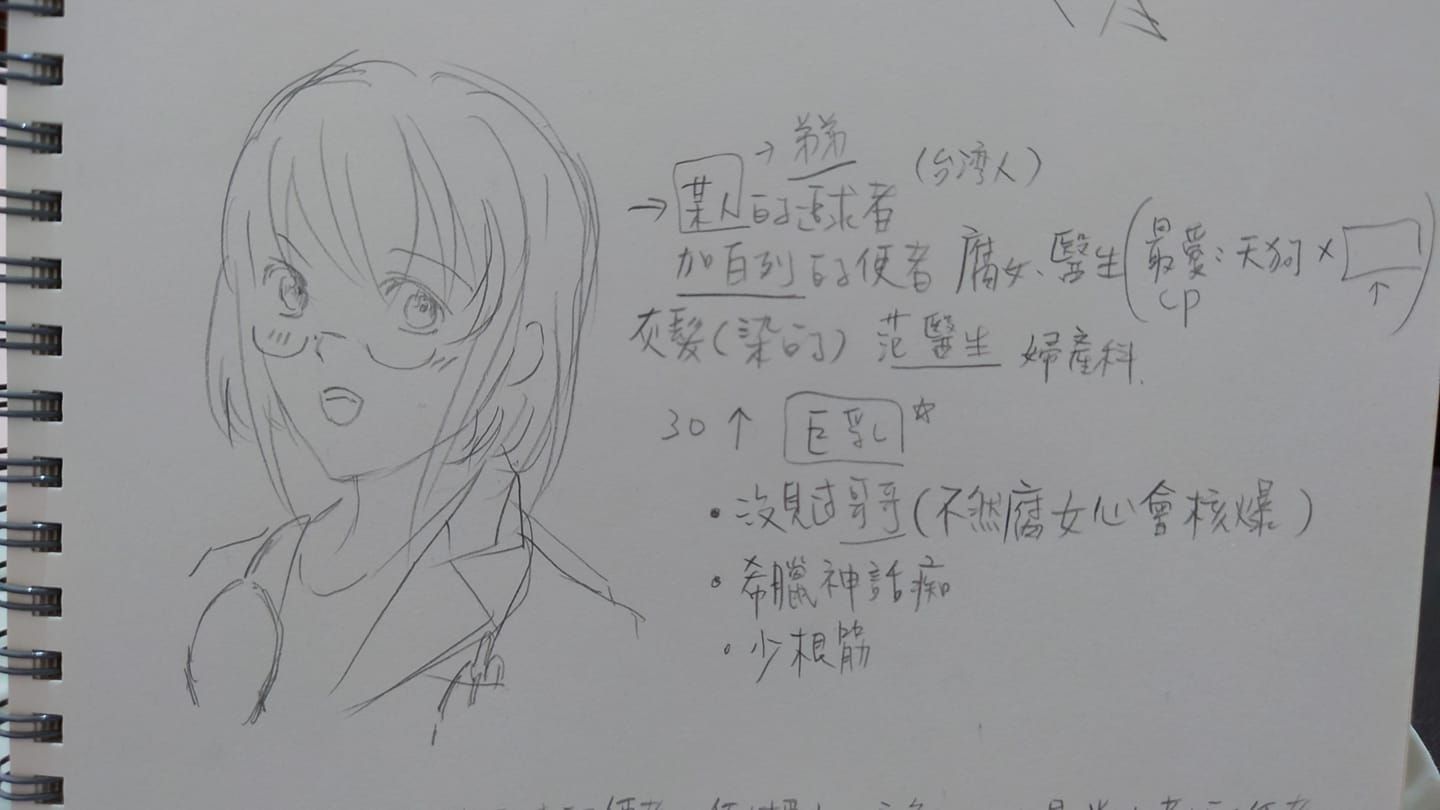 →弟弟
→某人的追求者 (台湾人)
加百列的使者 腐女、醫生(最愛:天狗×
CP ↑ )
灰髮(染的) 范醫生 婦產科.
30↑ 巨乳☆
・沒見过哥哥(不然腐女心會核爆)
・希臘神話痴
・少根筋